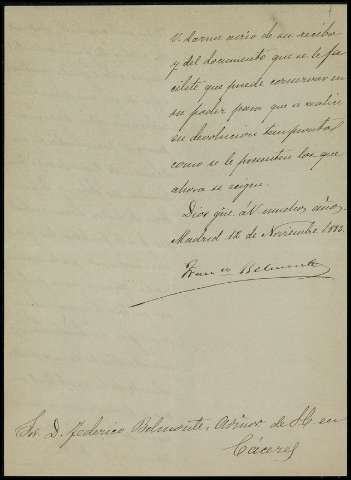 V. darme aviso de su recibo
y del documento que se le fa
cilite que puede conservar en
su poder para que se realice
su devolucion
como se le presenten los que
ahora se exigen.
Dios gûe. á V. muchos años.
Madrid 12 de Noviembre 1883.
Franco Belmonte
Sor. D. Federico Belmonte, de en
Cáceres